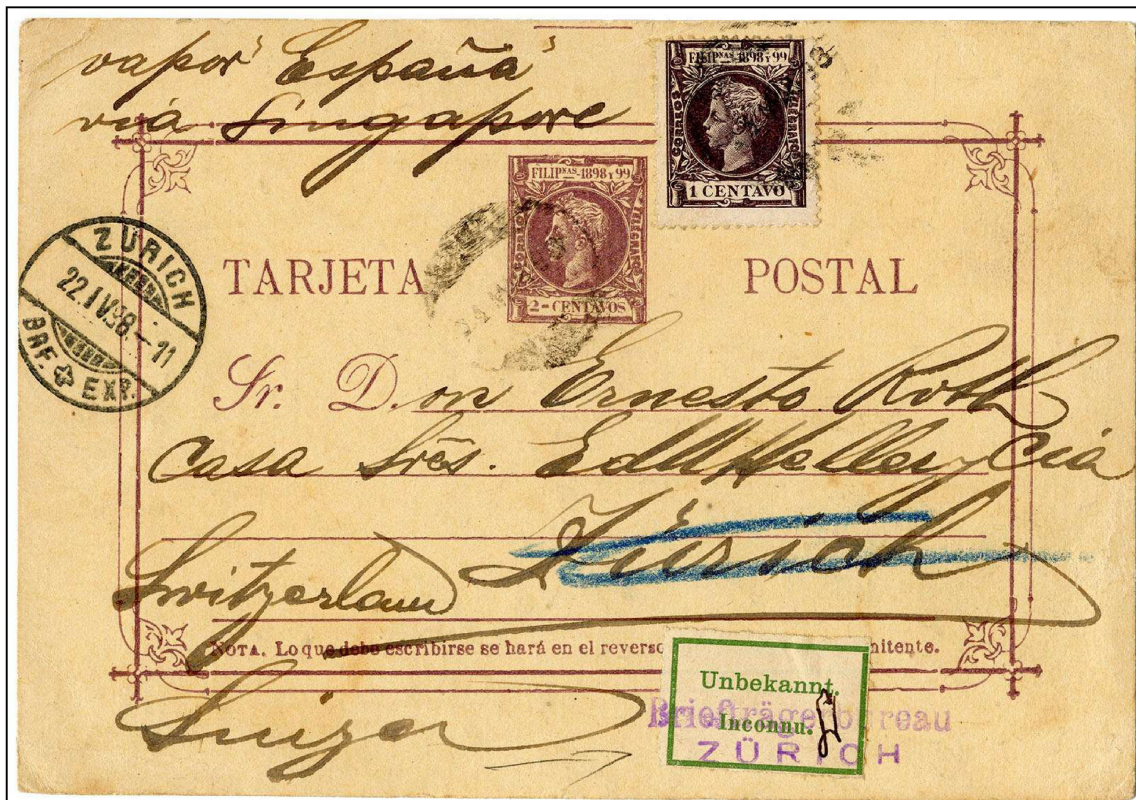 vapor "España"
via Singapore
FILIPNAS-1898 Y 99
CORREOS
TELEGRAFOS
1 CENTAVO
FILIPNAS-1898 Y 99
CORREOS
TELEGRAFOS
2-CENTAVOS
ZÜRICH
22.IV.98.-11
BRF. EXP.
TARJETA POSTAL
Sr. D.on Ernesto Roth
Casa Sres. Ed M Heller y Cia
Zürich
Switzerland
NOTA. Lo que debe escribirse se hará en el reverso
Suiza
Unbekannt.
Inconnu.
Briefträgerbureau
ZÜRICH